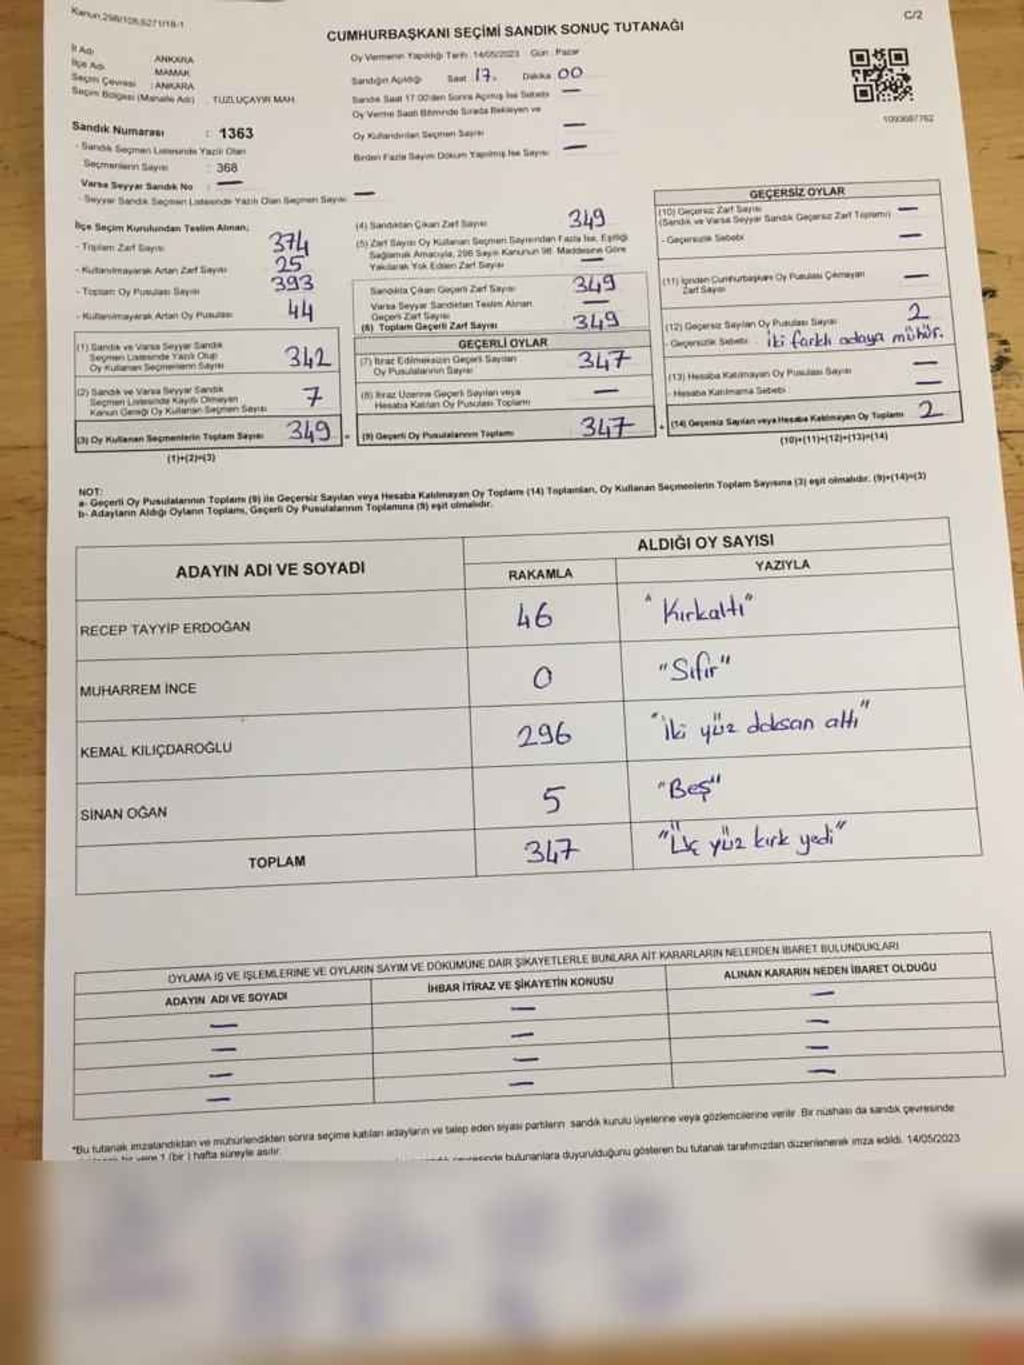 Kanun;298/105,6271/18-1
C/2
CUMHURBAŞKANI SEÇİMİ SANDIK SONUÇ TUTANAĞI
İl Adı : ANKARA
İlçe Adı : MAMAK
Seçim Çevresi : ANKARA
Seçim Bölgesi (Mahalle Adı) : TUZLUÇAYIR MAH.
Sandık Numarası : 1363
- Sandık Seçmen Listesinde Yazılı Olan
Seçmenlerin Sayısı : 368
Varsa Seyyar Sandık No : —
- Seyyar Sandık Seçmen Listesinde Yazılı Olan Seçmen Sayısı —
Oy Vermenin Yapıldığı Tarih :14/05/2023 Gün : Pazar
Sandığın Açıldığı Saat : 17. Dakika 00
Sandık Saat 17.00'den Sonra Açılmış İse Sebebi —
Oy Verme Saati Bitiminde Sırada Bekleyen ve
Oy Kullandırılan Seçmen Sayısı —
Birden Fazla Sayım Döküm Yapılmış İse Sayısı —
1093687762
İlçe Seçim Kurulundan Teslim Alınan;
- Toplam Zarf Sayısı 374
- Kullanılmayarak Artan Zarf Sayısı 25
- Toplam Oy Pusulası Sayısı 393
- Kullanılmayarak Artan Oy Pusulası 44
(1) Sandık ve Varsa Seyyar Sandık
Seçmen Listesinde Yazılı Olup
Oy Kullanan Seçmenlerin Sayısı 342
(2) Sandık ve Varsa Seyyar Sandık
Seçmen Listesinde Kayıtlı Olmayan
Kanun Gereği Oy Kullanan Seçmen Sayısı 7
(3) Oy Kullanan Seçmenlerin Toplam Sayısı 349 =
(1)+(2)=(3)
(4) Sandıktan Çıkan Zarf Sayısı 349
(5) Zarf Sayısı Oy Kullanan Seçmen Sayısından Fazla İse, Eşitliği
Sağlamak Amacıyla, 298 Sayılı Kanunun 98. Maddesine Göre
Yakılarak Yok Edilen Zarf Sayısı —
Sandıkta Çıkan Geçerli Zarf Sayısı 349
Varsa Seyyar Sandıktan Teslim Alınan
Geçerli Zarf Sayısı —
(6) Toplam Geçerli Zarf Sayısı 349
GEÇERLİ OYLAR
(7) İtiraz Edilmeksizin Geçerli Sayılan
Oy Pusulalarının Sayısı 347
(8) İtiraz Üzerine Geçerli Sayılan veya
Hesaba Katılan Oy Pusulası Toplamı —
(9) Geçerli Oy Pusulalarının Toplamı 347 +
GEÇERSİZ OYLAR
(10) Geçersiz Zarf Sayısı
(Sandık ve Varsa Seyyar Sandık Geçersiz Zarf Toplamı) —
- Geçersizlik Sebebi —
(11) İçinden Cumhurbaşkanı Oy Pusulası Çıkmayan
Zarf Sayısı —
(12) Geçersiz Sayılan Oy Pusulası Sayısı 2
- Geçersizlik Sebebi İki farklı adaya mühür.
(13) Hesaba Katılmayan Oy Pusulası Sayısı —
- Hesaba Katılmama Sebebi —
(14) Geçersiz Sayılan veya Hesaba Katılmayan Oy Toplamı 2
(10)+(11)+(12)+(13)=(14)
NOT:
a- Geçerli Oy Pusulalarının Toplamı (9) ile Geçersiz Sayılan veya Hesaba Katılmayan Oy Toplamı (14) Toplamları, Oy Kullanan Seçmenlerin Toplam Sayısına (3) eşit olmalıdır. (9)+(14)=(3)
b- Adayların Aldığı Oyların Toplamı, Geçerli Oy Pusulalarının Toplamına (9) eşit olmalıdır.
ADAYIN ADI VE SOYADI
ALDIĞI OY SAYISI
RAKAMLA YAZIYLA
RECEP TAYYİP ERDOĞAN 46 "Kırkaltı"
MUHARREM İNCE 0 "Sıfır"
KEMAL KILIÇDAROĞLU 296 "İki yüz doksan altı"
SİNAN OĞAN 5 "Beş"
TOPLAM 347 "Üç yüz kırk yedi"
OYLAMA İŞ VE İŞLEMLERİNE VE OYLARIN SAYIM VE DÖKÜMÜNE DAİR ŞİKAYETLERLE BUNLARA AİT KARARLARIN NELERDEN İBARET BULUNDUKLARI
ADAYIN ADI VE SOYADI İHBAR İTİRAZ VE ŞİKAYETİN KONUSU ALINAN KARARIN NEDEN İBARET OLDUĞU
— — —
— — —
— — —
— — —
*Bu tutanak imzalandıktan ve mühürlendikten sonra seçime katılan adayların ve talep eden siyasi partilerin sandık kurulu üyelerine veya gözlemcilerine verilir. Bir nüshası da sandık çevresinde
bir yere 1 (bir ) hafta süreyle asılır. bulunanlara duyurulduğunu gösteren bu tutanak tarafımızdan düzenlenerek imza edildi. 14/05/2023